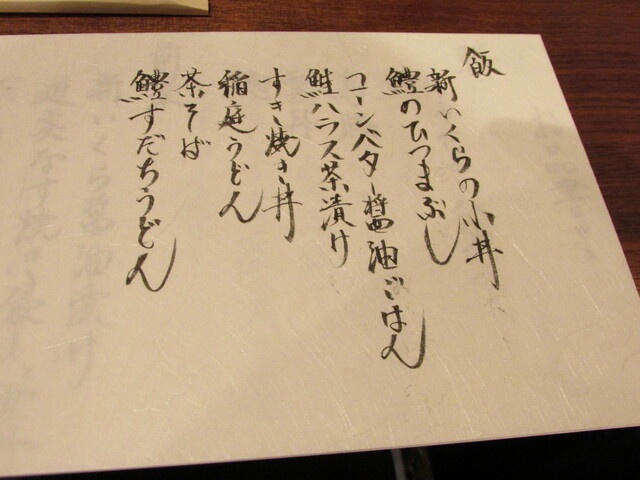 飯
新いくらの小丼
鱧のひつまぶし
コーンバター醤油ごはん
鮭ハラス茶漬け
すき焼き丼
稲庭うどん
茶そば
鱧すだちうどん